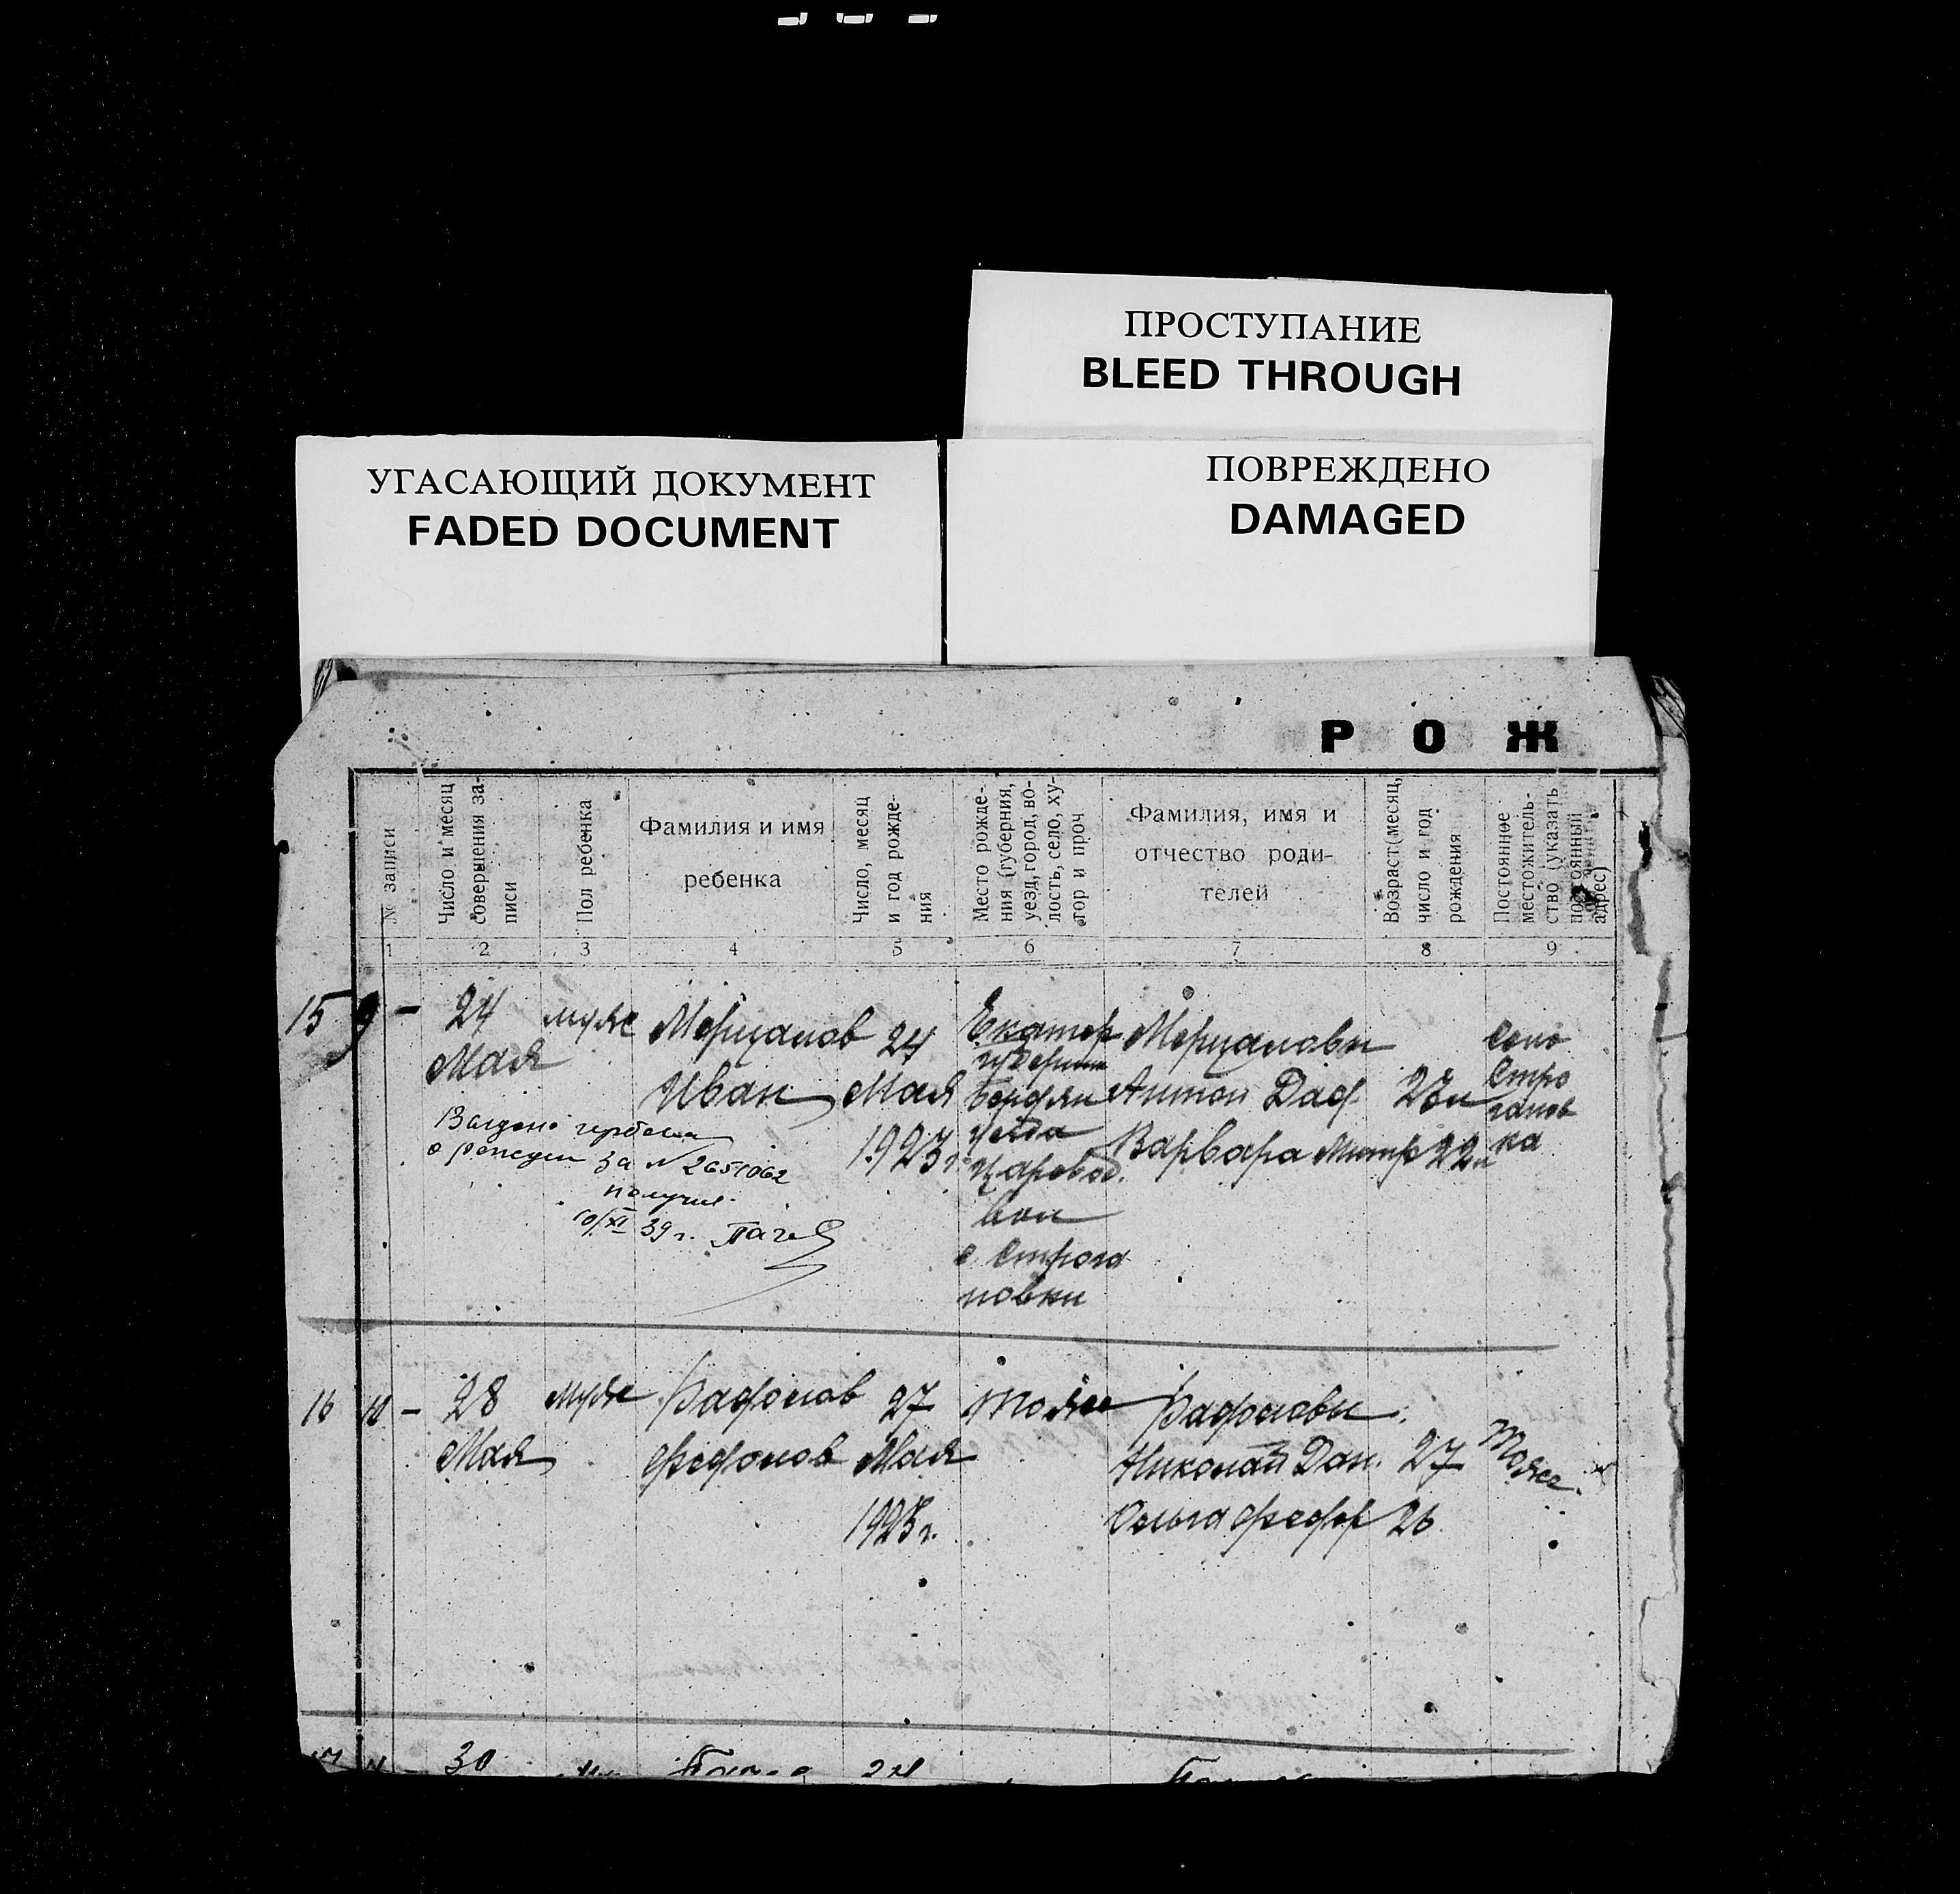 ПРОСТУПАНИЕ
BLEED THROUGH
УГАСАЮЩИЙ ДОКУМЕНТ
FADED DOCUMENT
ПОВРЕЖДЕНО
DAMAGED
Р О Ж
№ записи
Число и месяц
совершения за-
писи
Пол ребенка
Фамилия и имя
ребенка
Число, месяц
и год рожде-
ния
Место рожде-
ния (губерния,
уезд, город, во-
лость, село, ху-
тор и проч
Фамилия, имя и
отчество роди-
телей
Возраст (месяц,
число и год
рождения
Постоянное
местожитель-
ство (указать
постоянный
адрес)
1 2 3 4 5 6 7 8 9
15 9 –
24
Мая
муж
Мерцалов
Иван
24
Мая
1923 г.
Екатер
губернии
Бердян
уезда
Царевод.
вол
с Строга
новки
Мерцаловы
Антон Дад
Варвара Митр
22
село
Стро
ганов
ка
за № 2651062
получил
10/XI 39 г.
16 10 –
28
Мая
муж
27
Мая
1923 г.
тоже
Николай Дан. 27
Ольга Федор 26
тоже.
30